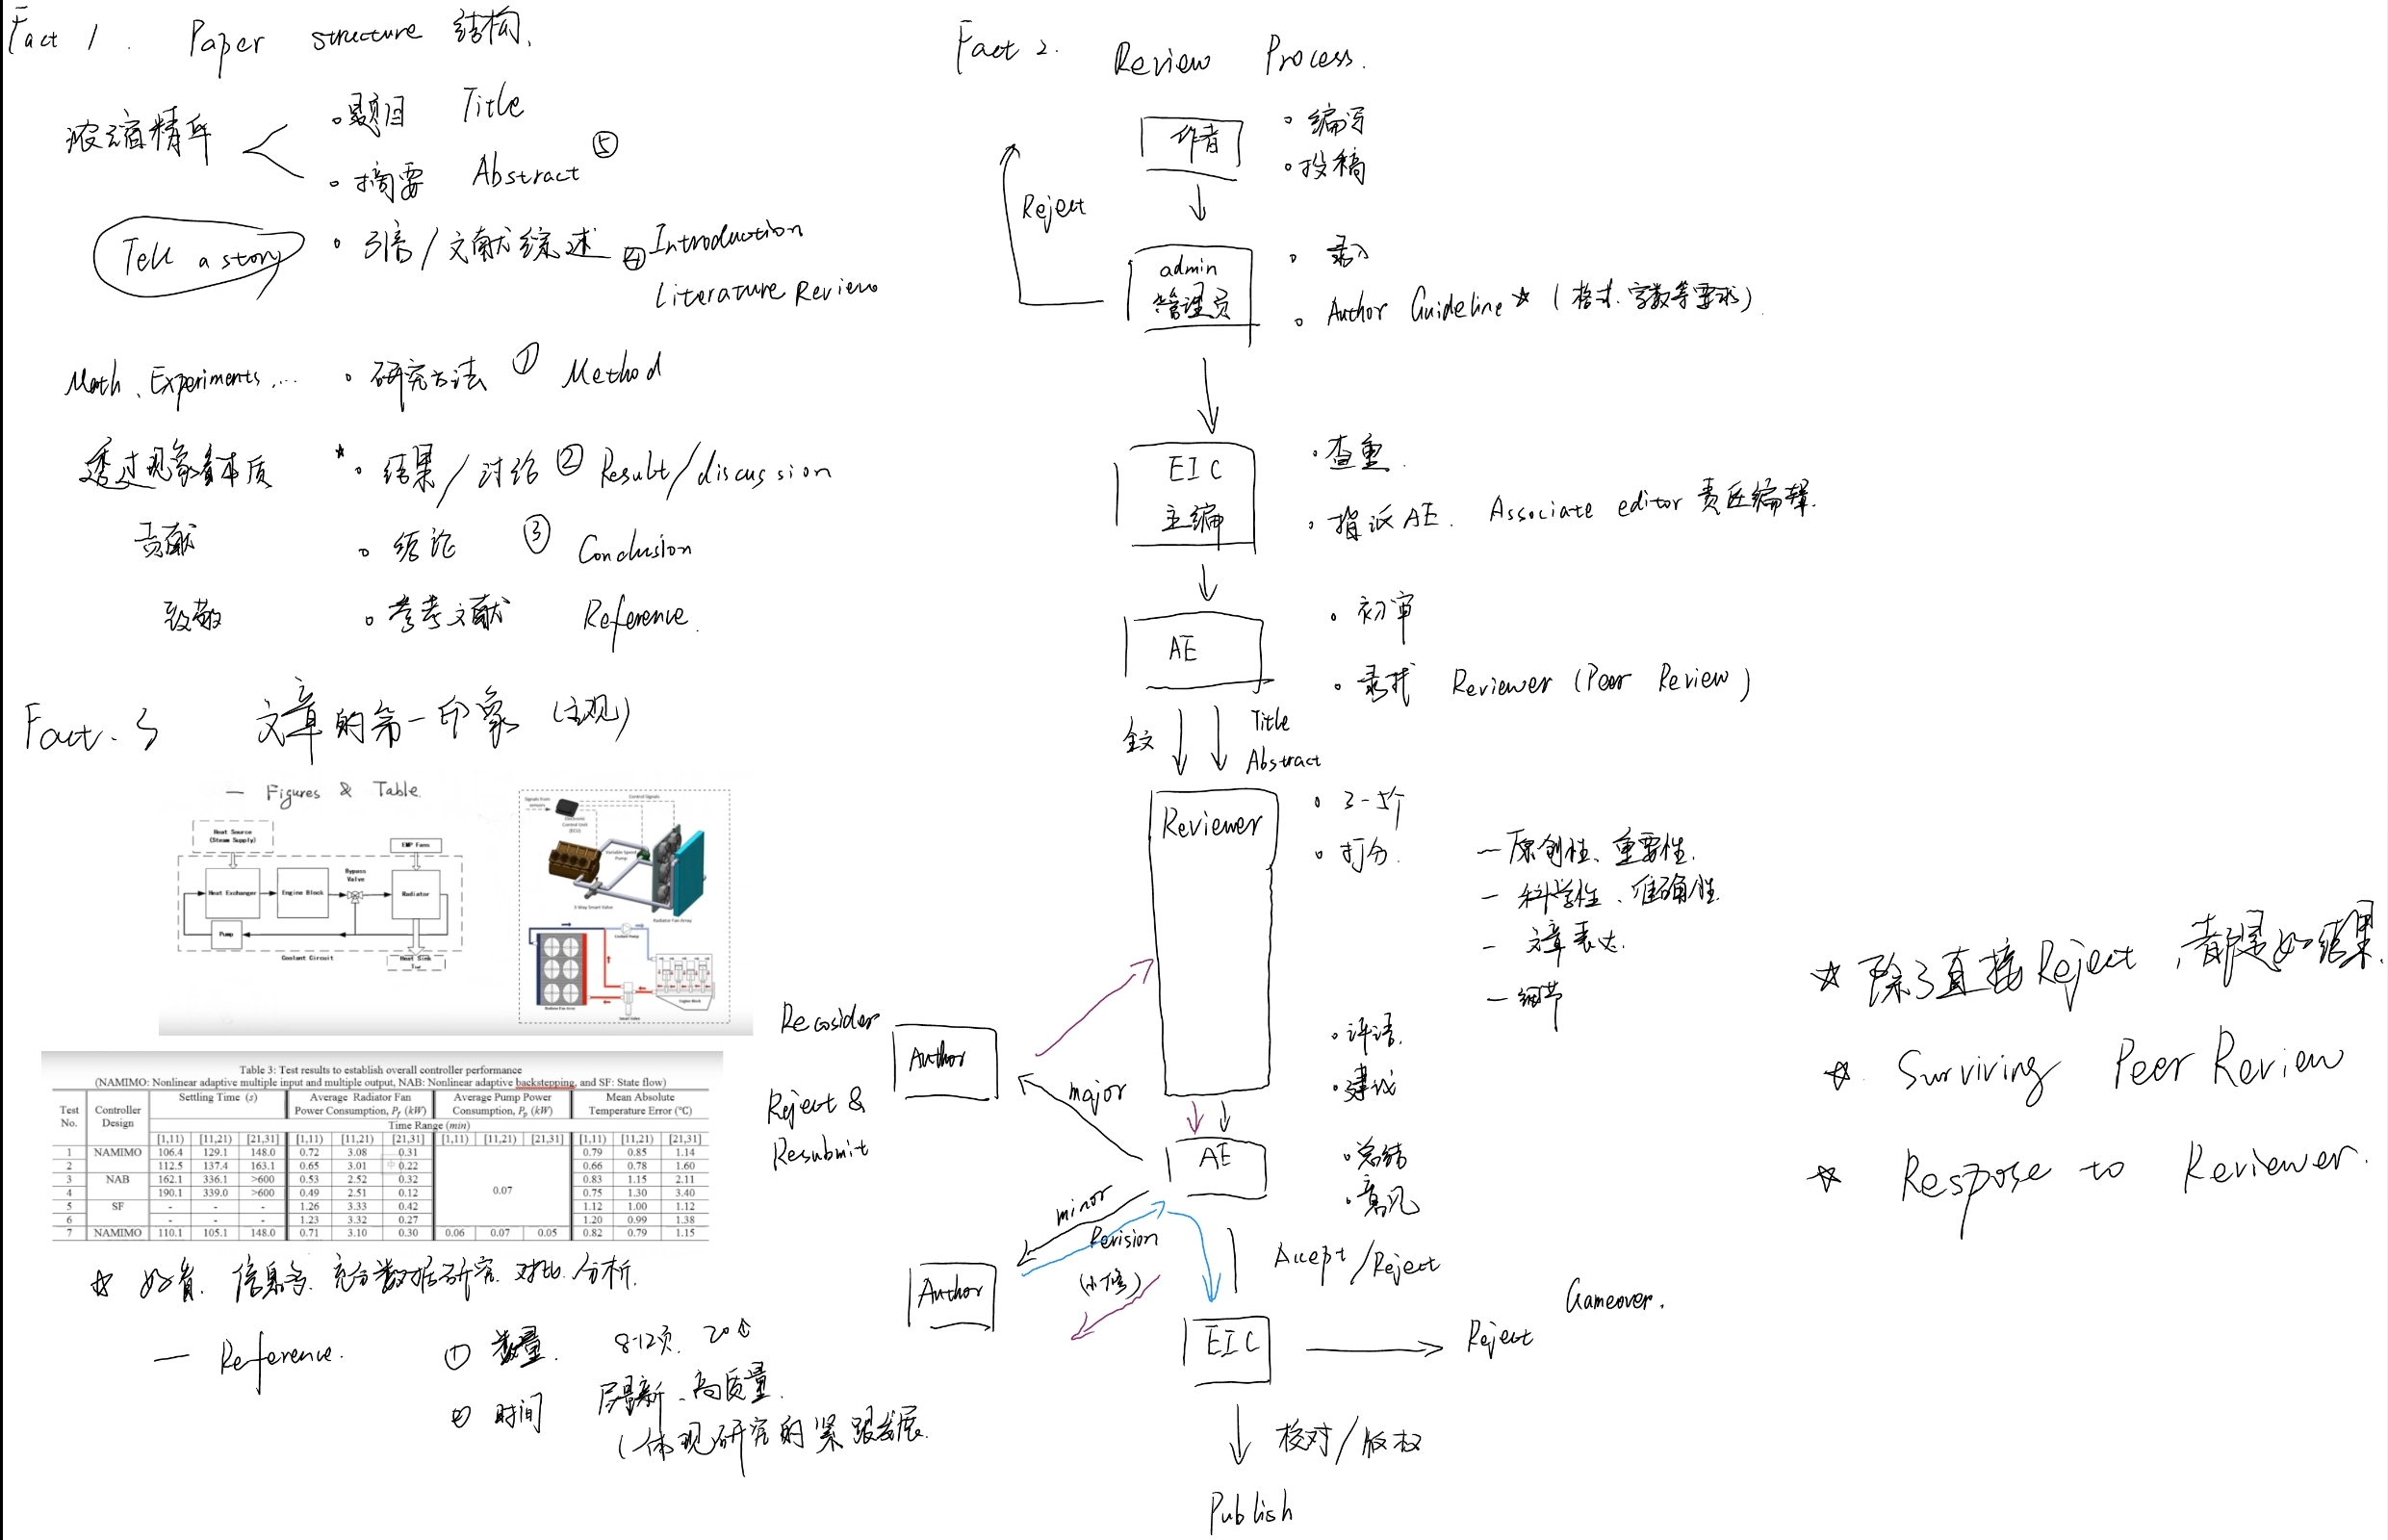 Fact 1. Paper structure 结构.
浓缩精华
。题目 Title
。摘要 Abstract ⑤
Tell a story 。引言/文献综述 ④ Introduction
Literature Review
Math、Experiments.... 。研究方法 ① Method
透过现象看本质 * 。结果/讨论 ② Result/discussion
贡献 。结论 ③ Conclusion
致敬 。参考文献 Reference.
Fact. 3 文章的第一印象 (主观)
— Figures & Table.
Heat Source
(Steam Supply)
EMP Fans
Bypass
Valve
Heat Exchanger
Engine Block
Radiator
Pump
Coolant Circuit
Heat Sink
Signals from
sensors
Control Signals
Electronic
Control Unit
(ECU)
Variable Speed
Pump
3-Way Smart Valve
Radiator Fan Array
Coolant Pump
Radiator Fan Array
Smart Valve
Engine Block
Table 3: Test results to establish overall controller performance
(NAMIMO: Nonlinear adaptive multiple input and multiple output, NAB: Nonlinear adaptive backstepping, and SF: State flow)
Test No. Controller Design Settling Time (s) Average Radiator Fan Power Consumption, Pf (kW) Average Pump Power Consumption, Pp (kW) Mean Absolute Temperature Error (°C)
Time Range (min)
[1,11) [11,21) [21,31] [1,11) [11,21) [21,31] [1,11) [11,21) [21,31] [1,11) [11,21) [21,31]
1 NAMIMO 106.4 129.1 148.0 0.72 3.08 0.31 0.79 0.85 1.14
2 112.5 137.4 163.1 0.65 3.01 0.22 0.66 0.78 1.60
3 NAB 162.1 336.1 >600 0.53 2.52 0.32 0.83 1.15 2.11
4 190.1 339.0 >600 0.49 2.51 0.12 0.07 0.75 1.30 3.40
5 SF - - - 1.26 3.33 0.42 1.12 1.00 1.12
6 - - - 1.23 3.32 0.27 1.20 0.99 1.38
7 NAMIMO 110.1 105.1 148.0 0.71 3.10 0.30 0.06 0.07 0.05 0.82 0.79 1.15
☆ 好看. 信息多. 充分数据研究. 对比.分析.
— Reference. ① 数量. 8-12页. 20个
② 时间 最新、高质量.
(体现研究的紧跟发展.
Fact 2. Review Process.
作者
。编写
。投稿
Reject
admin
管理员
。录入
。Author Guideline ☆ (格式.字数等要求)
EIC
主编
。查重.
。指派AE. Associate editor 责任编辑.
AE
。初审
。寻找 Reviewer (Peer Review)
全文
Title
Abstract
Reviewer
。3-5个
。打分.
— 原创性、重要性.
— 科学性、准确性
— 文章表达.
— 细节
。评语.
。建议
Recosider
Reject &
Resubmit
Author
major
AE
。总结
。意见
minor
Revision
(小修)
Author
Accept/Reject
EIC
Reject
Gameover.
校对/版权
Publish
☆ 除了直接Reject,都是好结果.
☆. Surviving Peer Review
☆ Respose to Reviewer.